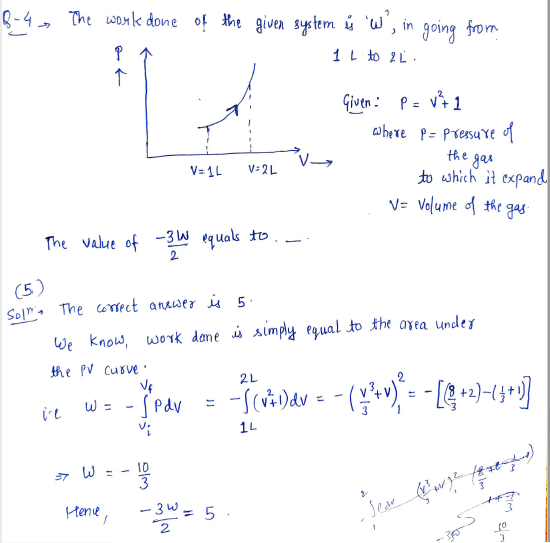 Q-4 → The work done of the given system is 'W', in going from
1 L to 2 L.
P
↑
Given: P = V²+1
where P = Pressure of
the gas
to which it expand
V = Volume of the gas.
V=1L V=2L V→
The value of -3W/2 equals to . —.
(5)
Solⁿ→ The correct answer is 5.
We know, work done is simply equal to the area under
the PV curve.
i.e W = - ∫_{Vi}^{Vf} PdV = - ∫_{1L}^{2L} (V²+1)dV = - (V³/3 + V)₁² = - [(8/3 +2)-(1/3+1)]
⇒ W = - 10/3
Hence, -3W/2 = 5.
10/3